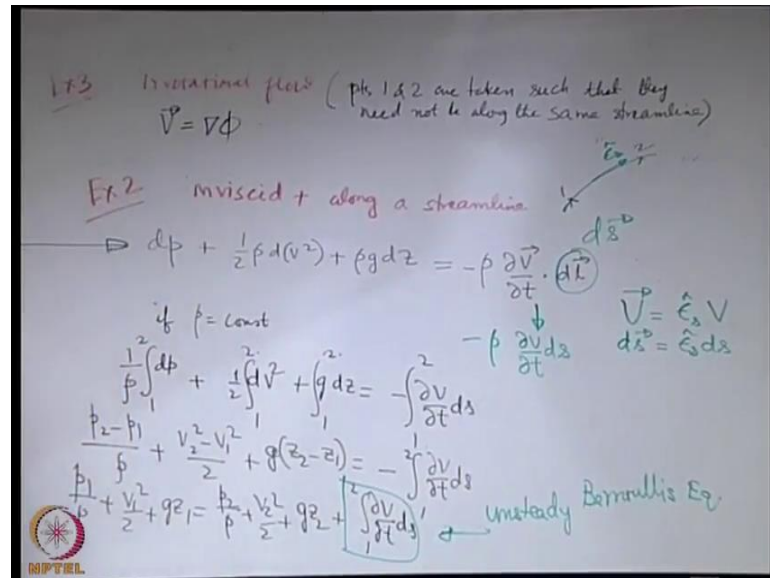 Ex.3 Irrotational flow (pts. 1 & 2 are taken such that they
need not be along the same streamline)
V⃗ = ∇ϕ
Ex.2 inviscid + along a streamline
ε̂s 2
1
ds⃗
dp + ½ρ d(V²) + ρg dz = -ρ ∂V⃗/∂t · dl⃗
if ρ = const
-ρ ∂V/∂t ds
V⃗ = ε̂s V
ds⃗ = ε̂s ds
1/ρ ∫₁² dp + ½ ∫₁² dV² + ∫₁² g dz = -∫₁² ∂V/∂t ds
(p₂-p₁)/ρ + (V₂²-V₁²)/2 + g(z₂-z₁) = -∫₁² ∂V/∂t ds
p₁/ρ + V₁²/2 + gz₁ = p₂/ρ + V₂²/2 + gz₂ + ∫₁² ∂V/∂t ds Unsteady Bernoullis Eq.
NPTEL